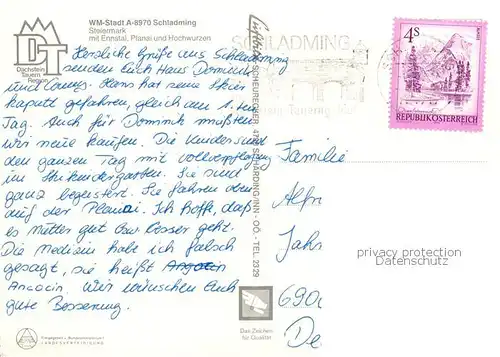 WM-Stadt A-8970 Schladming
Steiermark
mit Ennstal, Planei und Hochwurzen
DT
Dachstein
Tauern
Region
Herzliche Grüße aus Schladming
senden Euch Hans Dominik
und Hans hat seine Skier
kaputt gefahren, gleich am 1.
Tag. Auch für Dominik mußten
wir neue kaufen. Die Kinder sind
den ganzen Tag mit Vollverpflegung
im Skikindergarten. Sie sind
ganz begeistert. Sie fahren oben
auf der Planai. Ich hoffe, daß
es Mutter gut geht.
Die Medizin habe ich falsch
gesagt, sie heißt
Ancocin. Wir wünschen Euch
gute Besserung.
SCHLADMING
4S
REPUBLIK ÖSTERREICH
SCHÄRDING/INN - OÖ - TEL. 2329
Familie
Alfr
Jahr
690
De
privacy protection
Datenschutz
Das Zeichen
für Qualität